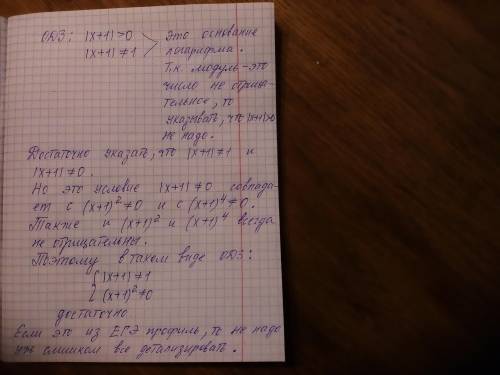 ОДЗ: |x+1|>0 Это основание
|x+1|≠1 логарифма.
Т.к. модуль-это
число не отрица-
тельное, то
указывать, что |x+1|>0
не надо.
Достаточно указать, что |x+1|≠1 и
|x+1|≠0.
Но это условие |x+1|≠0 совпада-
ет с (x+1)²≠0 и с (x+1)⁴≠0.
Также и (x+1)² и (x+1)⁴ всегда
не отрицательны.
Поэтому в таком виде ОДЗ:
{ |x+1|≠1
(x+1)²≠0
достаточно
Если это из ЕГЭ профиль, то не надо
уж слишком все детализировать.